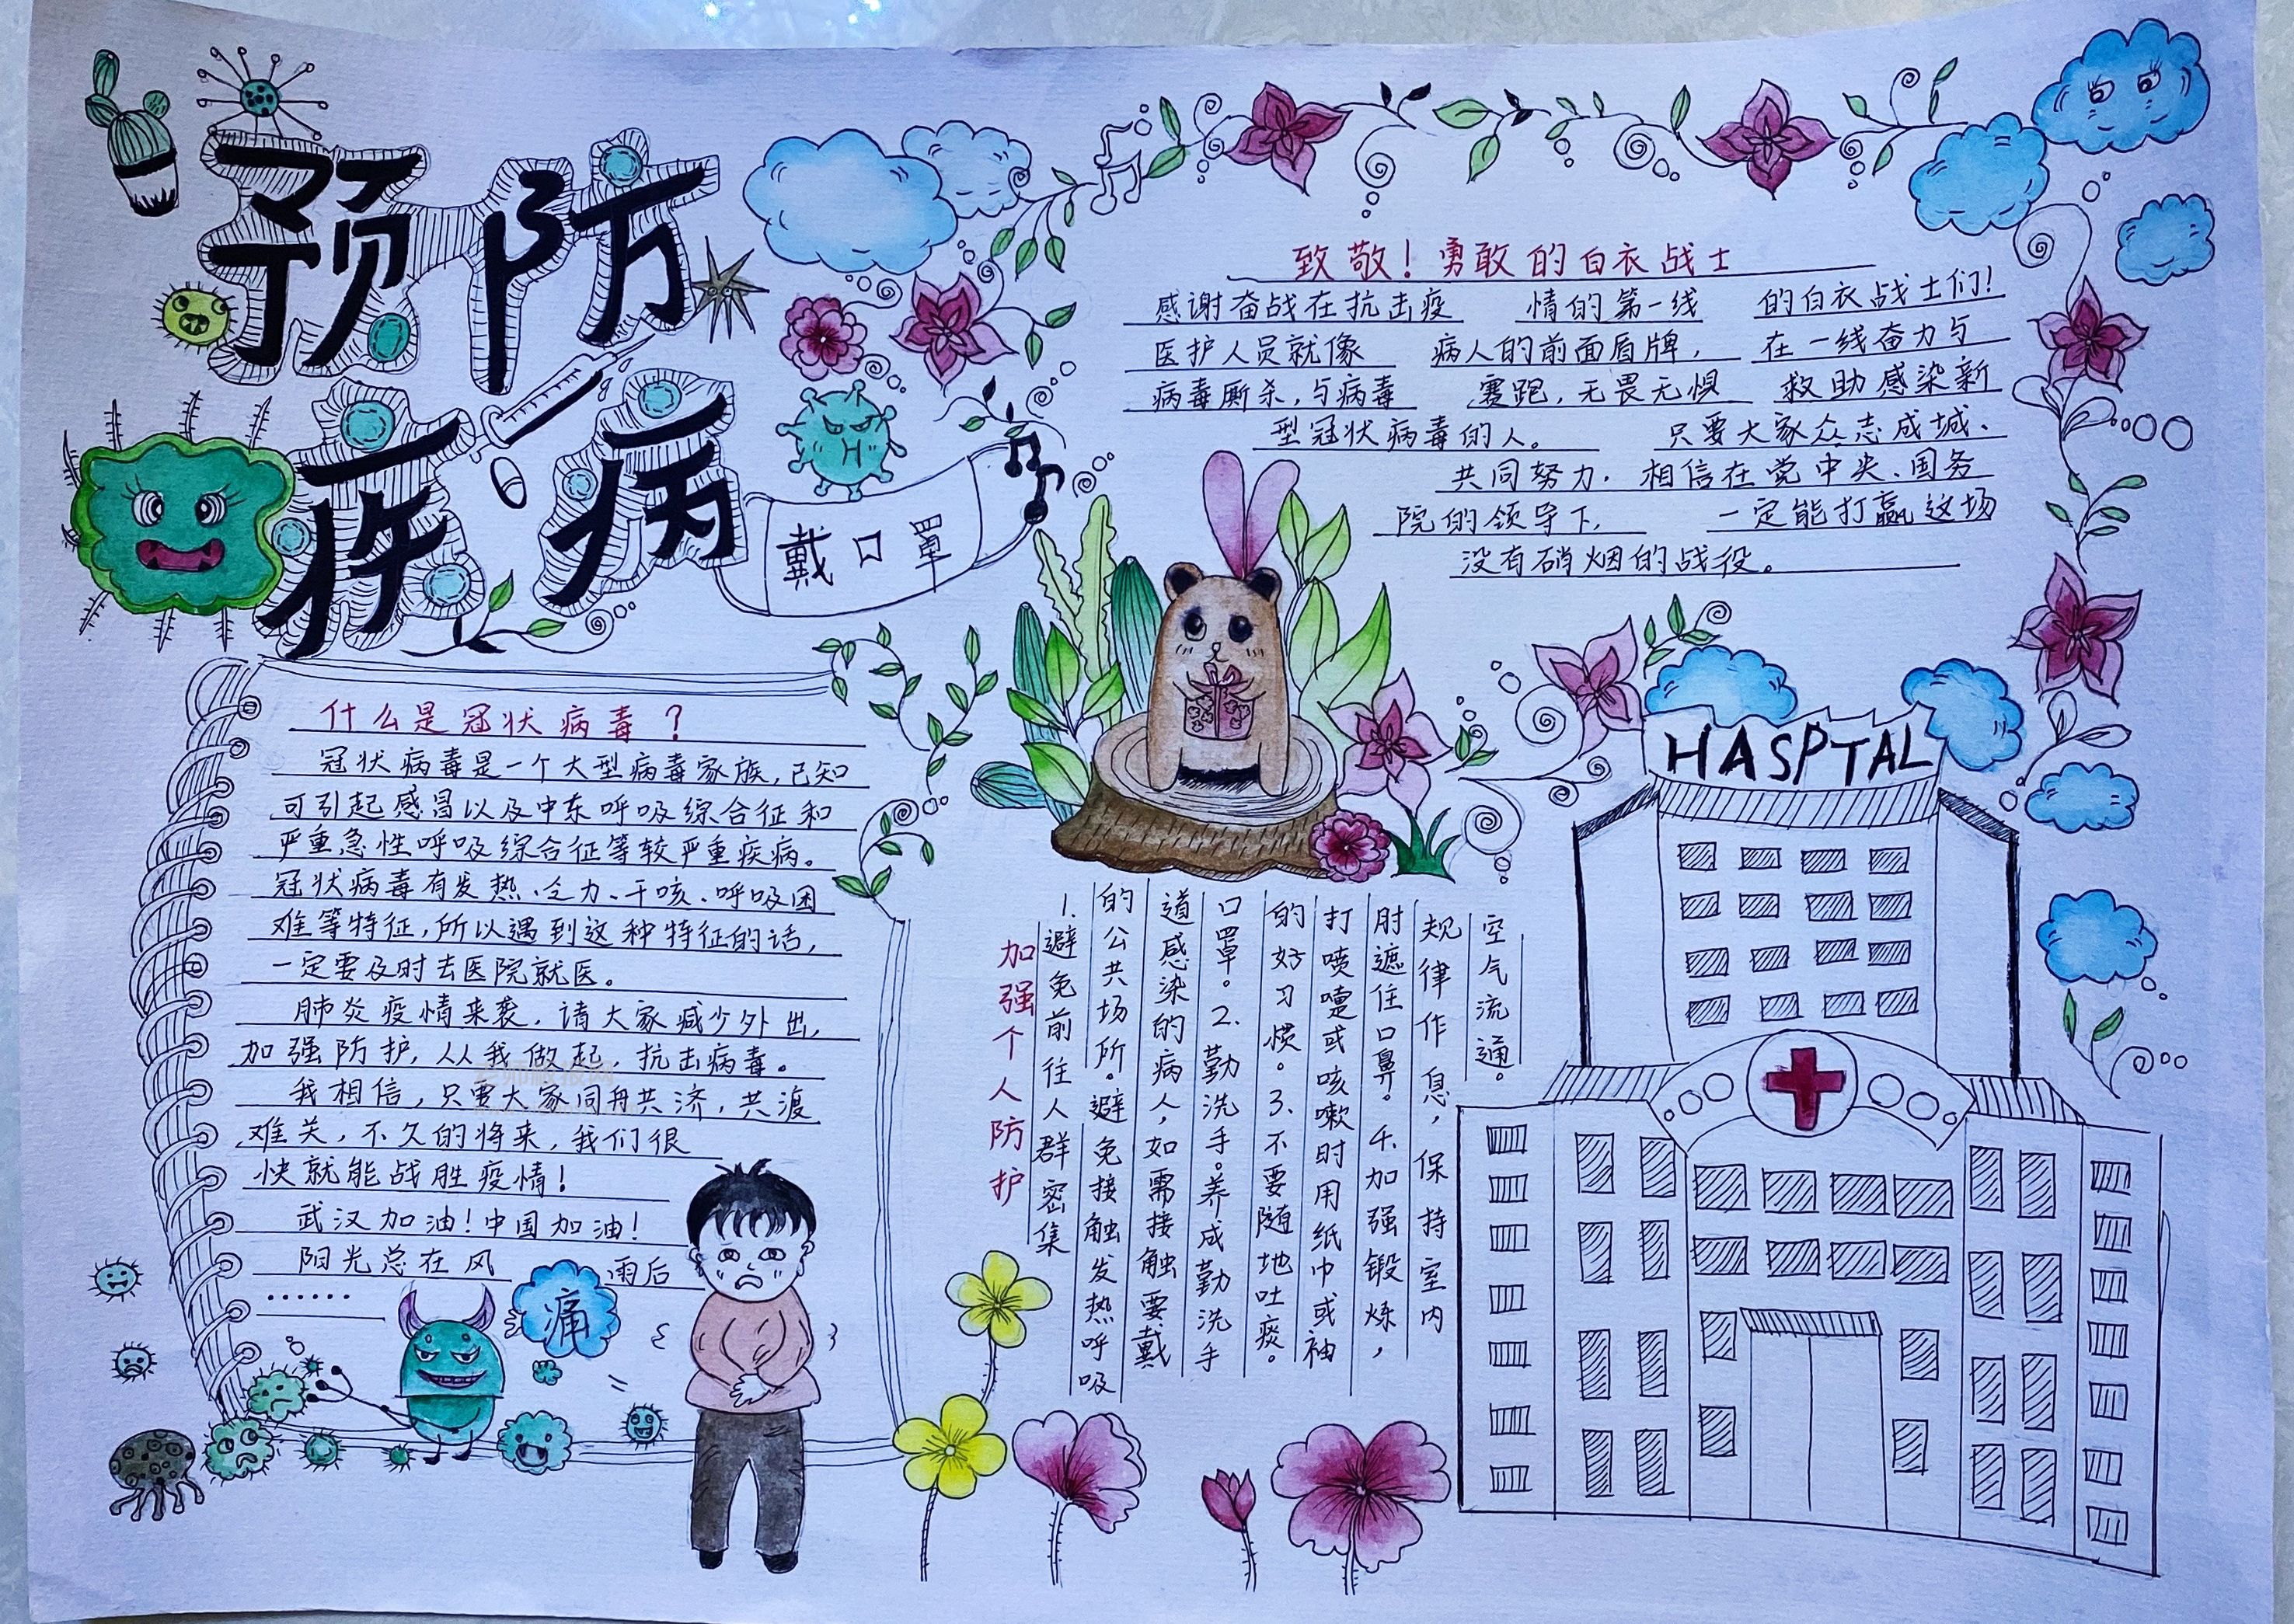 预防
疾病
戴口罩
什么是冠状病毒？
冠状病毒是一个大型病毒家族，已知
可引起感冒以及中东呼吸综合征和
严重急性呼吸综合征等较严重疾病。
冠状病毒有发热、乏力、干咳、呼吸困
难等特征，所以遇到这种特征的话，
一定要及时去医院就医。
肺炎疫情来袭，请大家减少外出，
加强防护，从我做起，抗击病毒。
我相信，只要大家同舟共济，共渡
难关，不久的将来，我们很
快就能战胜疫情！
武汉加油！中国加油！
阳光总在风 雨后
……
痛
致敬！勇敢的白衣战士
感谢奋战在抗击疫 情的第一线 的白衣战士们！
医护人员就像 病人的前面盾牌， 在一线奋力与
病毒厮杀，与病毒 赛跑，无畏无惧 救助感染新
型冠状病毒的人。 只要大家众志成城、
共同努力，相信在党中央、国务
院的领导下， 一定能打赢这场
没有硝烟的战役。
加强个人防护
1.避免前往人群密集
的公共场所。避免接触发热呼吸
道感染的病人，如需接触要戴
口罩。2.勤洗手。养成勤洗手
的好习惯。3.不要随地吐痰。
打喷嚏或咳嗽时用纸巾或袖
肘遮住口鼻。4.加强锻炼，
规律作息，保持室内
空气流通。
HASPTAL